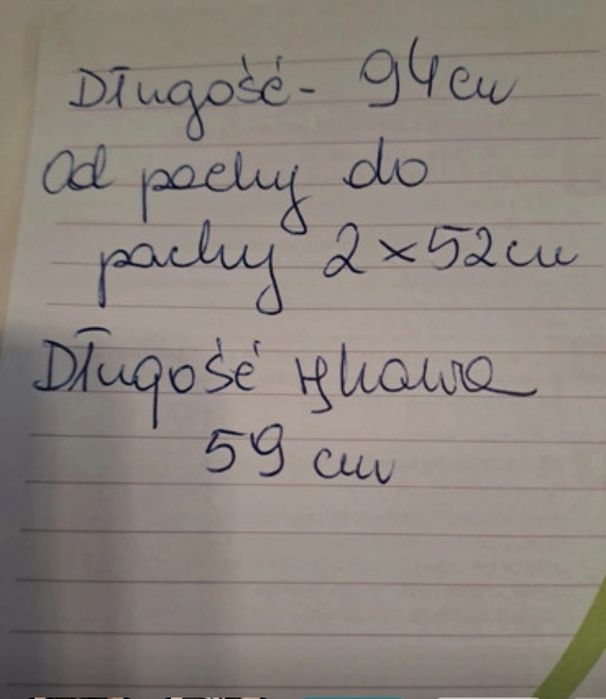 Długość - 94 cm
Od pachy do
pachy 2 x 52 cm
Długość rękawa
59 cm